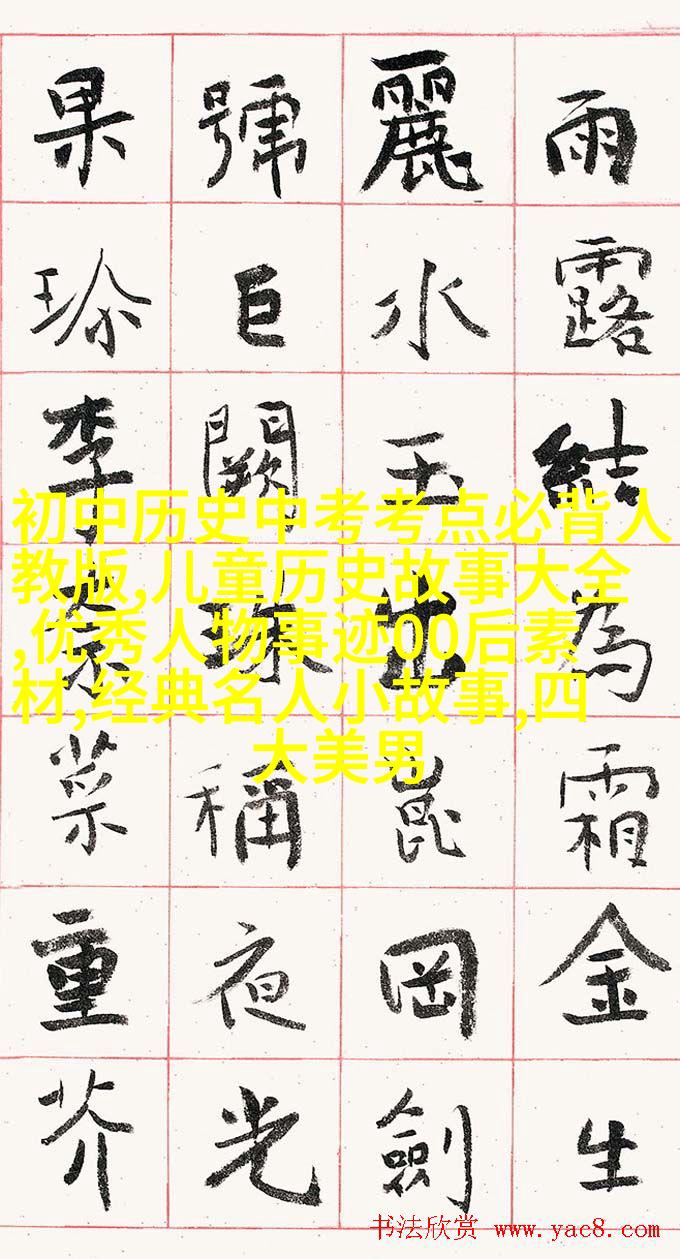 雨露結為霜金生
麗水玉出崑岡劍
號巨闕珠稱夜光
果珍李柰菜重芥
初中历史中考考点必背人
教版,儿童历史故事大全
,优秀人物事迹00后素
材,经典名人小故事,四
大美男
书法欣赏 www.yac8.com